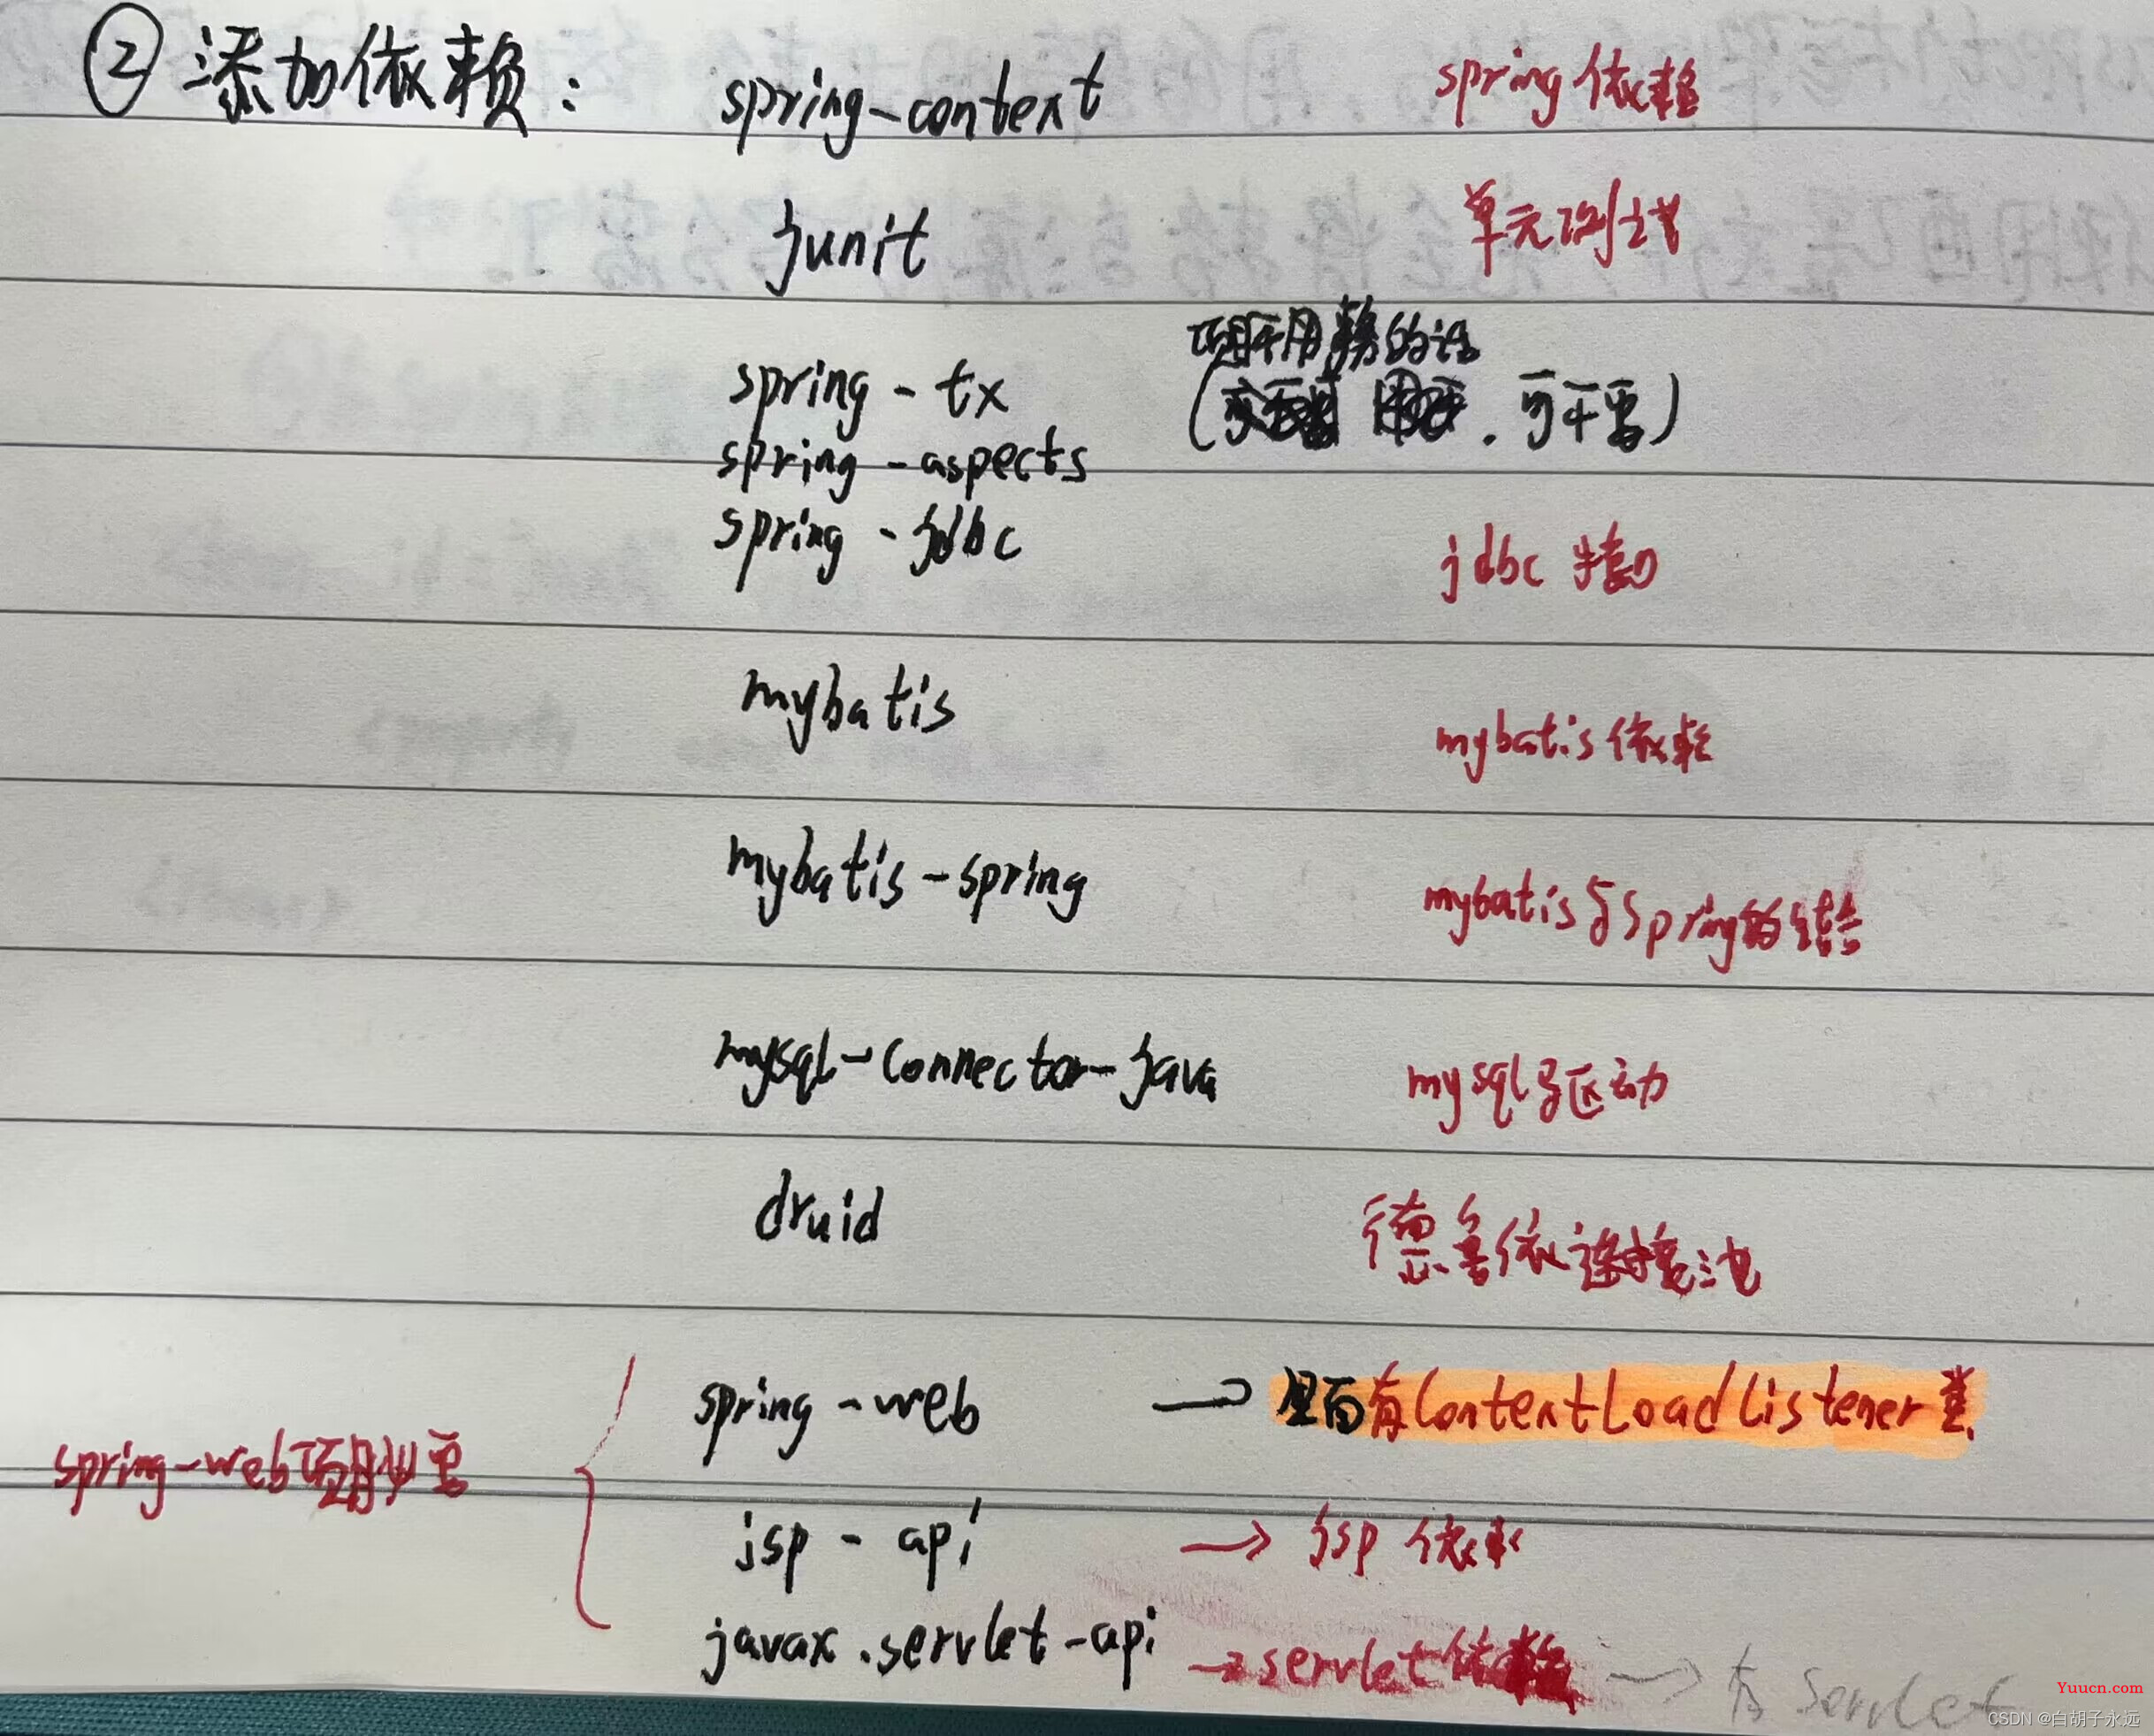 ② 添加依赖： spring-context spring依赖
junit 单元测试
项目不用事务的话
spring - tx ( . 可不要)
spring - aspects
spring - jdbc jdbc接口
mybatis mybatis依赖
mybatis-spring mybatis与spring的结合
mysql-connector-java mysql驱动
druid 德鲁依连接池
spring-web → 里面有ContextLoadListener类
spring-web项目必要
jsp - api → jsp 依赖
javax.servlet-api → servlet依赖 → 有 Servlet
Yuucn.com
CSDN @白胡子永远